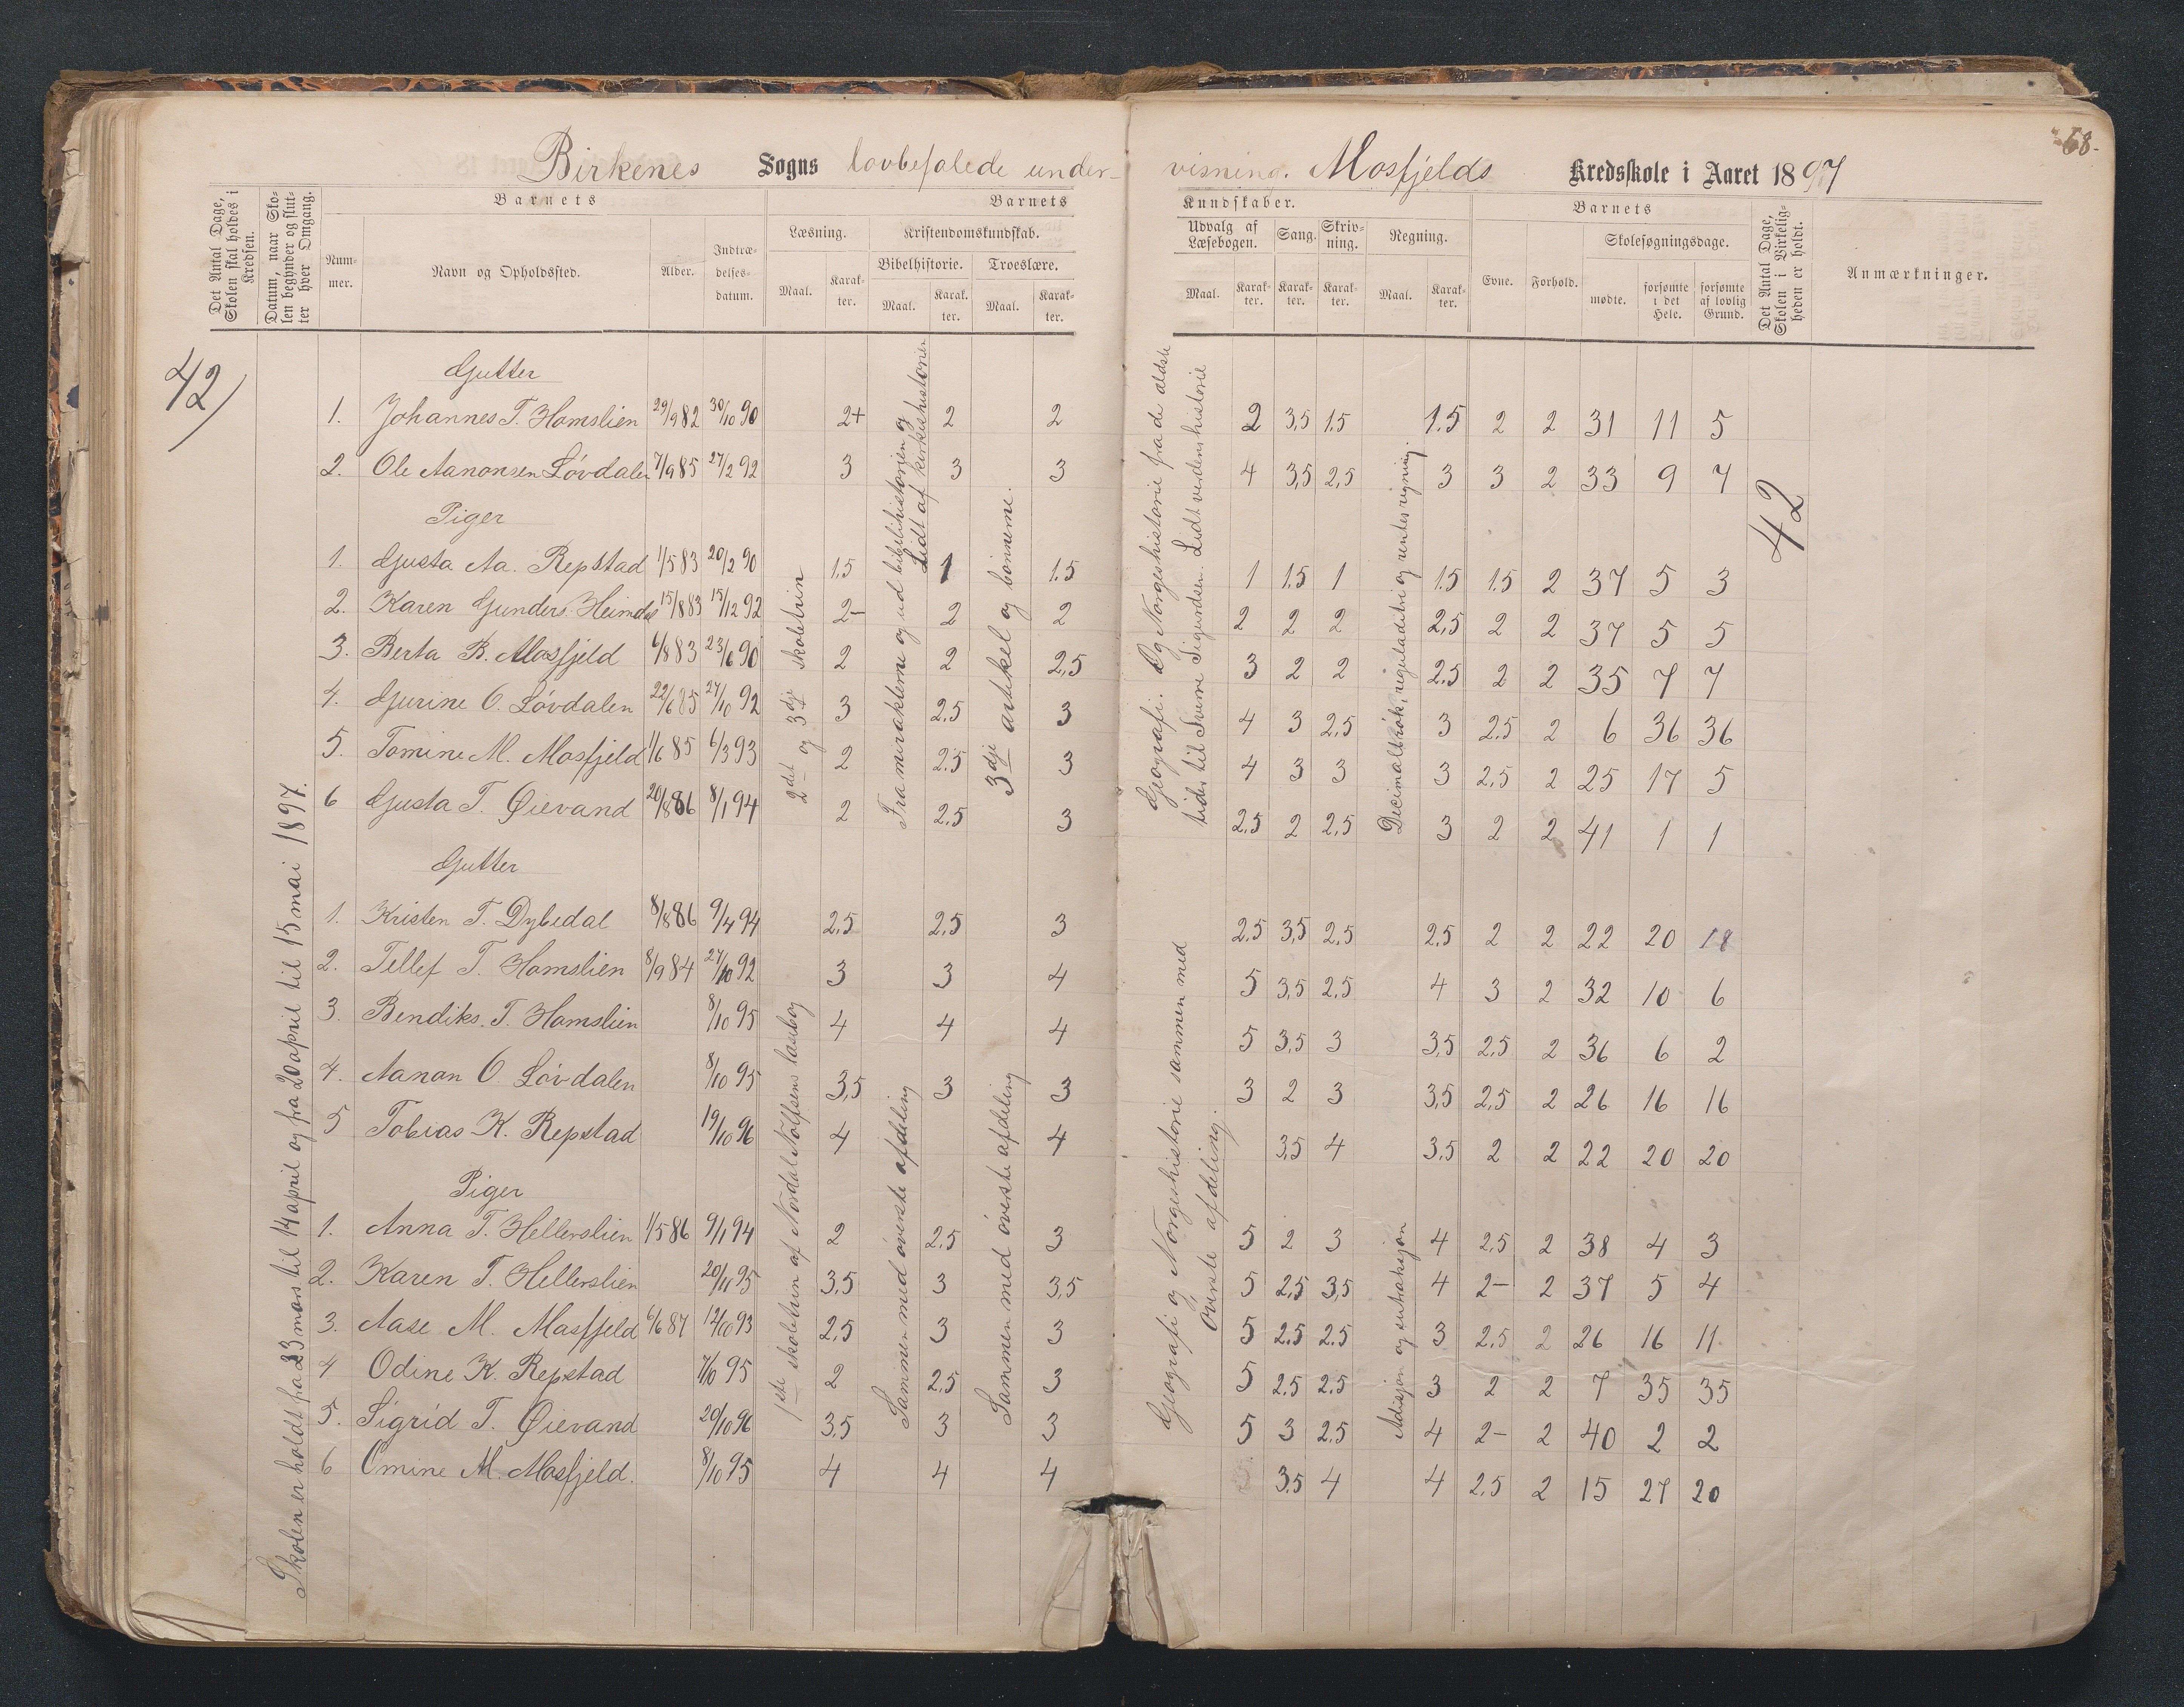 68.
Birkenes Sogns lovbefalede under-
visning. Mosfjelds Kredsskole i Aaret 1897
Det Antal Dage, Skolen skal holdes i Kredsen.
Datum, naar Skolen begynder og slutter hver Omgang.
Barnets
Nummer.
Navn og Opholdssted.
Alder.
Indtrædelsesdatum.
Barnets
Læsning.
Maal.
Karakter.
Kristendomskundskab.
Bibelhistorie.
Maal.
Karakter.
Troeslære.
Maal.
Karakter.
Kundskaber.
Udvalg af Læsebogen.
Maal.
Karakter.
Sang.
Karakter.
Skrivning.
Karakter.
Regning.
Maal.
Karakter.
Barnets
Evne.
Forhold.
Skolesøgningsdage.
mødte.
forsømte i det Hele.
forsømte af lovlig Grund.
Det Antal Dage, Skolen i Virkeligheden er holdt.
Anmærkninger.
42
Skolen er holdt fra 23 mars til 14 april og fra 20 april til 15 mai 1897.
Gutter
1. Johannes T. Homslien 29/9 82 30/10 90 2+ 2 2 2 3,5 1.5 1.5 2 2 31 11 5
2. Ole Aanonsen Lövdalen 7/9 85 27/2 92 3 3 3 4 3,5 2,5 3 3 2 33 9 7
Piger
1. Gusta Aa. Repstad 1/5 83 20/2 90 1.5 1 1.5 1 1.5 1 1.5 1.5 2 37 5 3
2. Karen Gunders. Heimdal 15/8 83 15/12 92 2- 2 2 2 2 2 2,5 2 2 37 5 5
3. Berta B. Mosfjeld 6/8 83 23/6 90 2 2 2,5 3 2 2 2.5 2 2 35 7 7
4. Gurine O. Lövdalen 22/6 85 27/10 92 3 2.5 3 4 3 2,5 3 2.5 2 6 36 36
5. Tomine M. Mosfjeld 1/6 85 6/3 93 2 2.5 3 4 3 3 3 2,5 2 25 17 5
6 Gusta T. Øievand 20/8 86 8/1 94 2 2.5 3 2,5 2 2,5 3 2 2 41 1 1
2det og 3dje skoletrin
Fra miraklerne og ud bibelhistorien og
Lidt af kirkehistorien
3dje artikkel og bönnerne.
Geografi. Og Norgeshistorie fra de ældste
tider til Sverre Sigurdsen. Lidt verdenshistorie
Decimalbrök, reguladetri og rentesregning.
42
Gutter
1. Kristen T. Dybedal 8/8 86 9/4 94 2,5 2,5 3 2,5 3,5 2,5 2,5 2 2 22 20 18
2. Tellef T. Homslien 8/9 84 27/10 92 3 3 4 5 3,5 2,5 4 3 2 32 10 6
3. Bendiks. T. Homslien 8/10 95 4 4 4 5 3,5 3 3,5 2,5 2 36 6 2
4. Aanon O. Lövdalen 8/10 95 3,5 3 3 3 2 3 3,5 2,5 2 26 16 16
5 Tobias K. Repstad 19/10 96 4 4 3.5 4 3.5 2 2 22 20 20
Piger
1. Anna T. Hellerslien 1/5 86 9/1 94 2 2.5 3 5 2 3 4 2,5 2 38 4 3
2. Karen T. Hellerslien 20/11 95 3,5 3 3,5 5 2,5 3,5 4 2- 2 37 5 4
3. Aase M. Mosfjeld 6/6 87 12/10 93 2,5 3 3 5 2.5 2.5 3 2,5 2 26 16 11
4 Odine K. Repstad 7/10 95 2 2.5 3 5 2.5 2.5 3 2 2 7 35 35
5. Sigrid T. Øievand 20/10 96 3.5 3 3 5 3 2.5 4 2- 2 40 2 2
6 Omine M. Mosfjeld. 8/10 95 4 4 4 3.5 4 4 2,5 2 15 27 20
1ste skoletrin af Nordal Rolfsens læsebog
Sammen med överste afdeling
Sammen med överste afdeling
Geografi og Norgeshistorie sammen med
överste afdeling.
Adisjon og suttraksjon